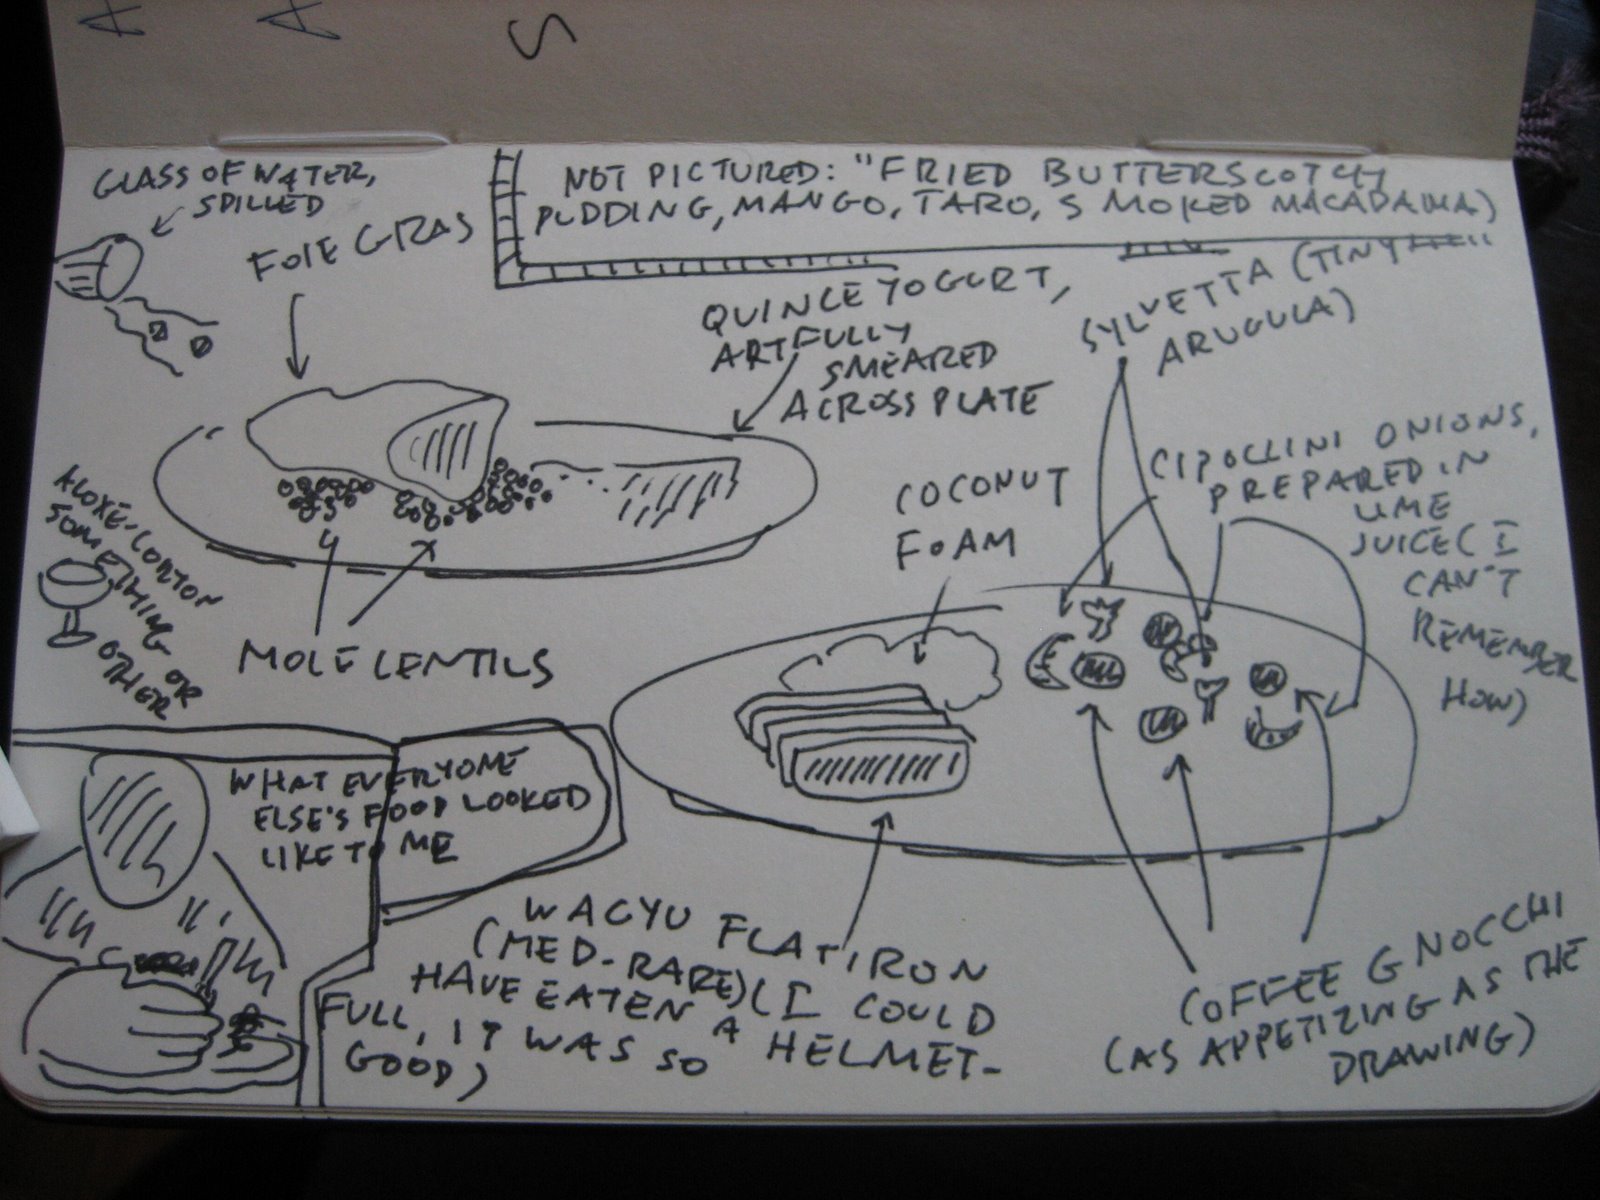 A A S
GLASS OF WATER,
SPILLED
NOT PICTURED: "FRIED BUTTERSCOTCH
PUDDING, MANGO, TARO, SMOKED MACADAMIA)
"
FOIE GRAS
QUINCE YOGURT,
ARTFULLY
SMEARED
ACROSS PLATE
SYLVETTA (TINY
ARUGULA)
CIPOLLINI ONIONS,
PREPARED IN
LIME
JUICE (I
CAN'T
REMEMBER
HOW)
COCONUT
FOAM
ALOXE-CORTON
SOMETHING OR
OTHER
MOLE LENTILS
WHAT EVERYONE
ELSE'S FOOD LOOKED
LIKE TO ME
WAGYU FLATIRON
(MED-RARE) (I COULD
HAVE EATEN A HELMET-
FULL, IT WAS SO
GOOD)
COFFEE GNOCCHI
(AS APPETIZING AS THE
DRAWING)